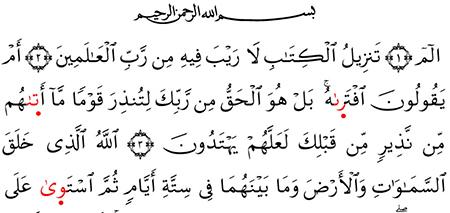 بسم الله الرحمن الرحيم
الٓمٓ ﴿١﴾ تَنزِيلُ ٱلۡكِتَٰبِ لَا رَيۡبَ فِيهِ مِن رَّبِّ ٱلۡعَٰلَمِينَ ﴿٢﴾ أَمۡ
يَقُولُونَ ٱفۡتَرىٰهُۚ بَلۡ هُوَ ٱلۡحَقُّ مِن رَّبِّكَ لِتُنذِرَ قَوۡمٗا مَّآ أَتىٰهُم
مِّن نَّذِيرٖ مِّن قَبۡلِكَ لَعَلَّهُمۡ يَهۡتَدُونَ ﴿٣﴾ ٱللَّهُ ٱلَّذِى خَلَقَ
ٱلسَّمَٰوَٰتِ وَٱلۡأَرۡضَ وَمَا بَيۡنَهُمَا فِى سِتَّةِ أَيَّامٖ ثُمَّ ٱسۡتَوىٰ عَلَى